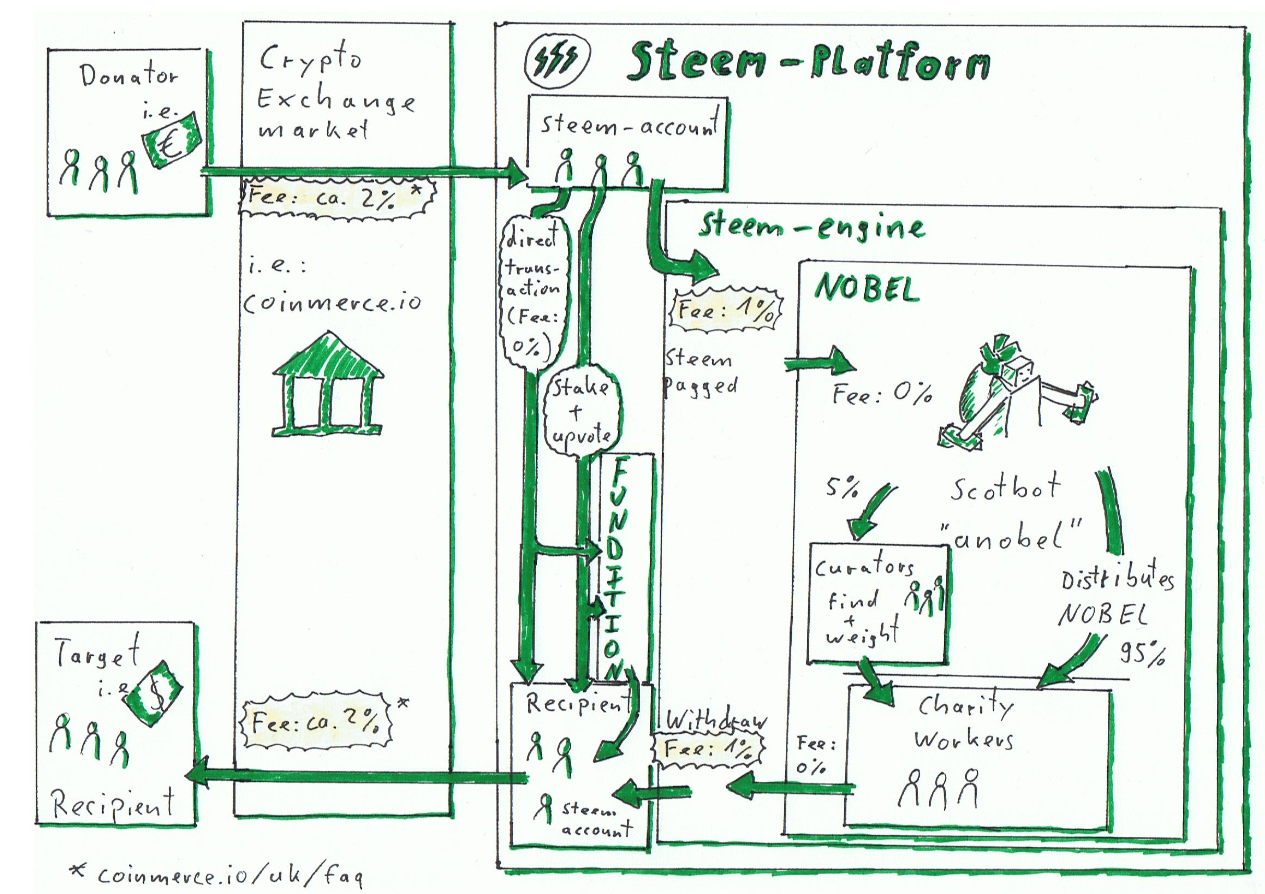 Donator
i.e.
€
Crypto
Exchange
market
Fee: ca. 2% *
i.e.:
coinmerce.io
Steem-Platform
steem-account
direct
trans-
action
(Fee:
0%)
Stake
+
upvote
FUNDITION
steem-engine
Fee: 1%
Steem
pagged
NOBEL
Fee: 0%
5%
Scotbot
"anobel"
Curators
find
+
weight
Distributes
NOBEL
95%
Charity
Workers
Fee:
0%
Withdraw
Fee: 1%
Recipient
steem
account
Fee: ca. 2% *
Target
i.e.
$
Recipient
* coinmerce.io/uk/faq